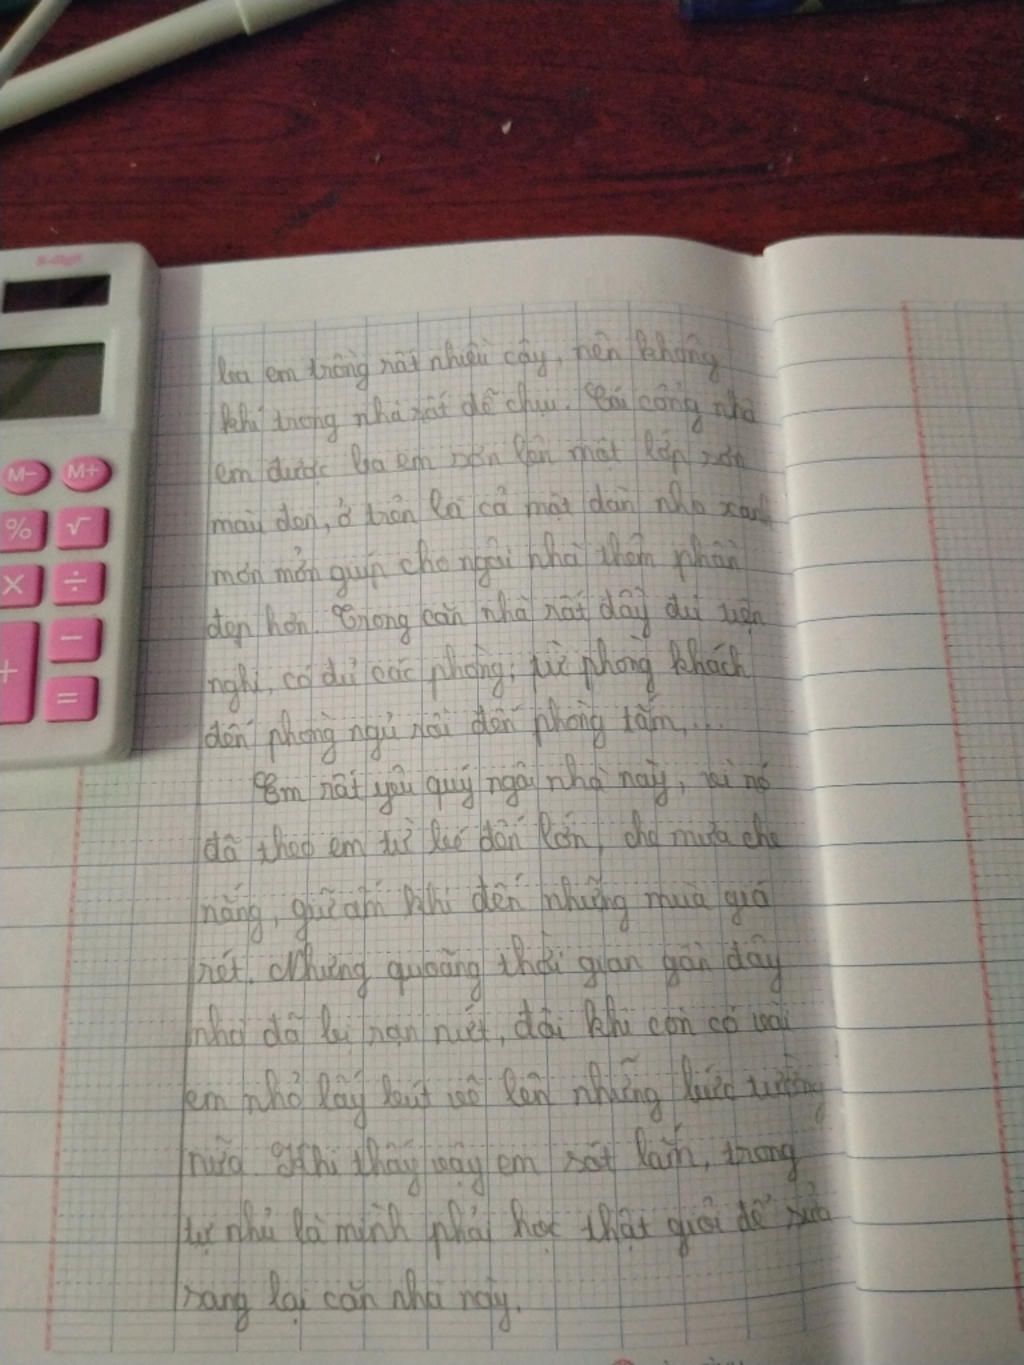 8-digit
M- M+
% √
× ÷
+ −
=
ba em trồng rất nhiều cây, nên không
khí trong nhà rất dễ chịu. Cái cổng nhà
em được ba em sơn lên một lớp sơn
màu đen, ở trên là cả một dàn nho xanh
mơn mởn giúp cho ngôi nhà thêm phần
đẹp hơn. Trong căn nhà rất đầy đủ tiện
nghi, có đủ các phòng; từ phòng khách
đến phòng ngủ rồi đến phòng tắm,...
Em rất yêu quý ngôi nhà này, vì nó
đã theo em từ bé đến lớn, che mưa che
nắng, giữ ấm khi đến những mùa giá
rét. Nhưng quoãng thời gian gần đây
nhà đã bị rạn nứt, đôi khi còn có vài
em nhỏ lấy bút vẽ lên những bức tường
nữa. Khi thấy vậy em xót lắm, trong
tự nhủ là mình phải học thật giỏi để sửa
sang lại căn nhà này.